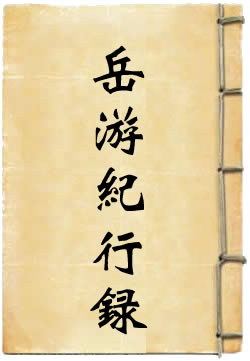 岳游紀行録